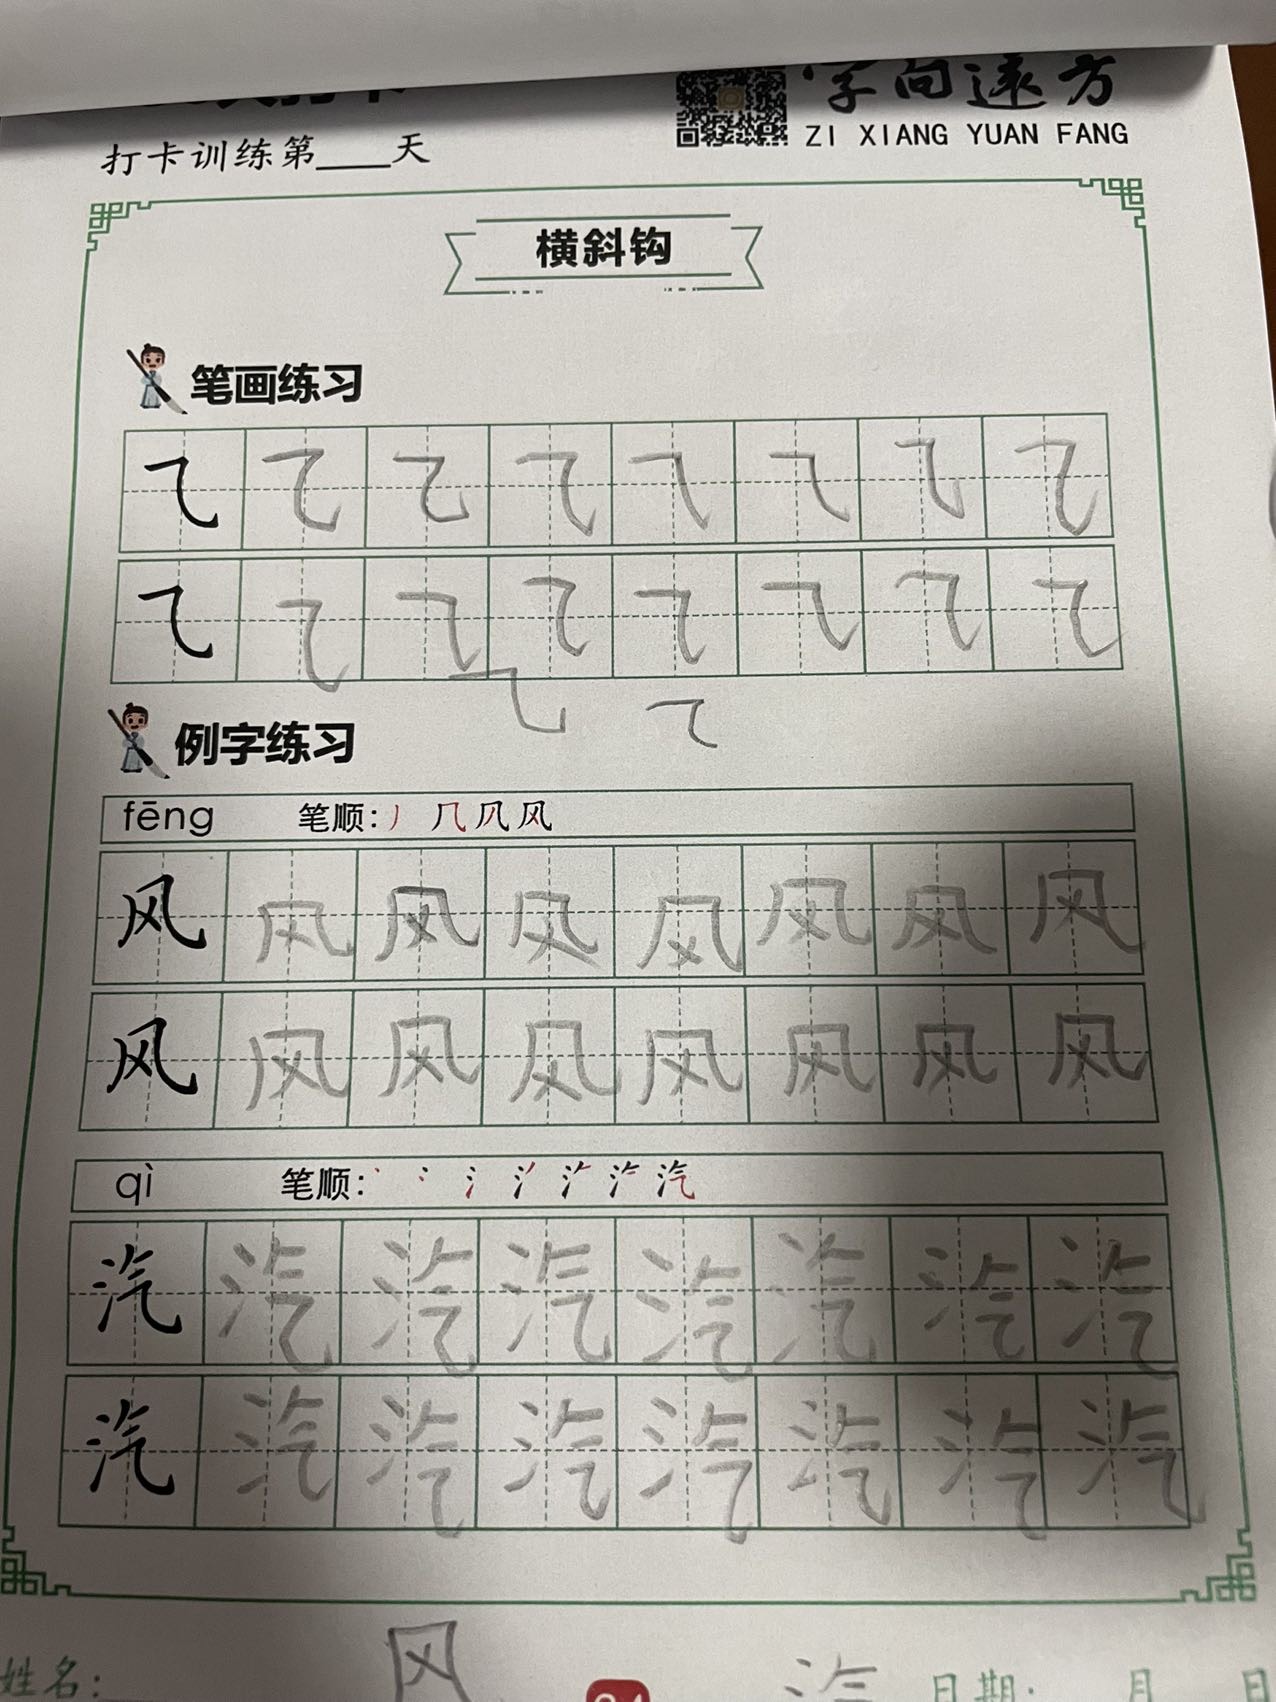 字向远方
ZI XIANG YUAN FANG
打卡训练第____天
横斜钩
笔画练习
例字练习
fēng 笔顺:
风 风 风 风 风 风 风 风
风 风 风 风 风 风 风 风
qì 笔顺:
汽 汽 汽 汽 汽 汽 汽 汽
汽 汽 汽 汽 汽 汽 汽 汽
风
姓名: 日期: 月 日